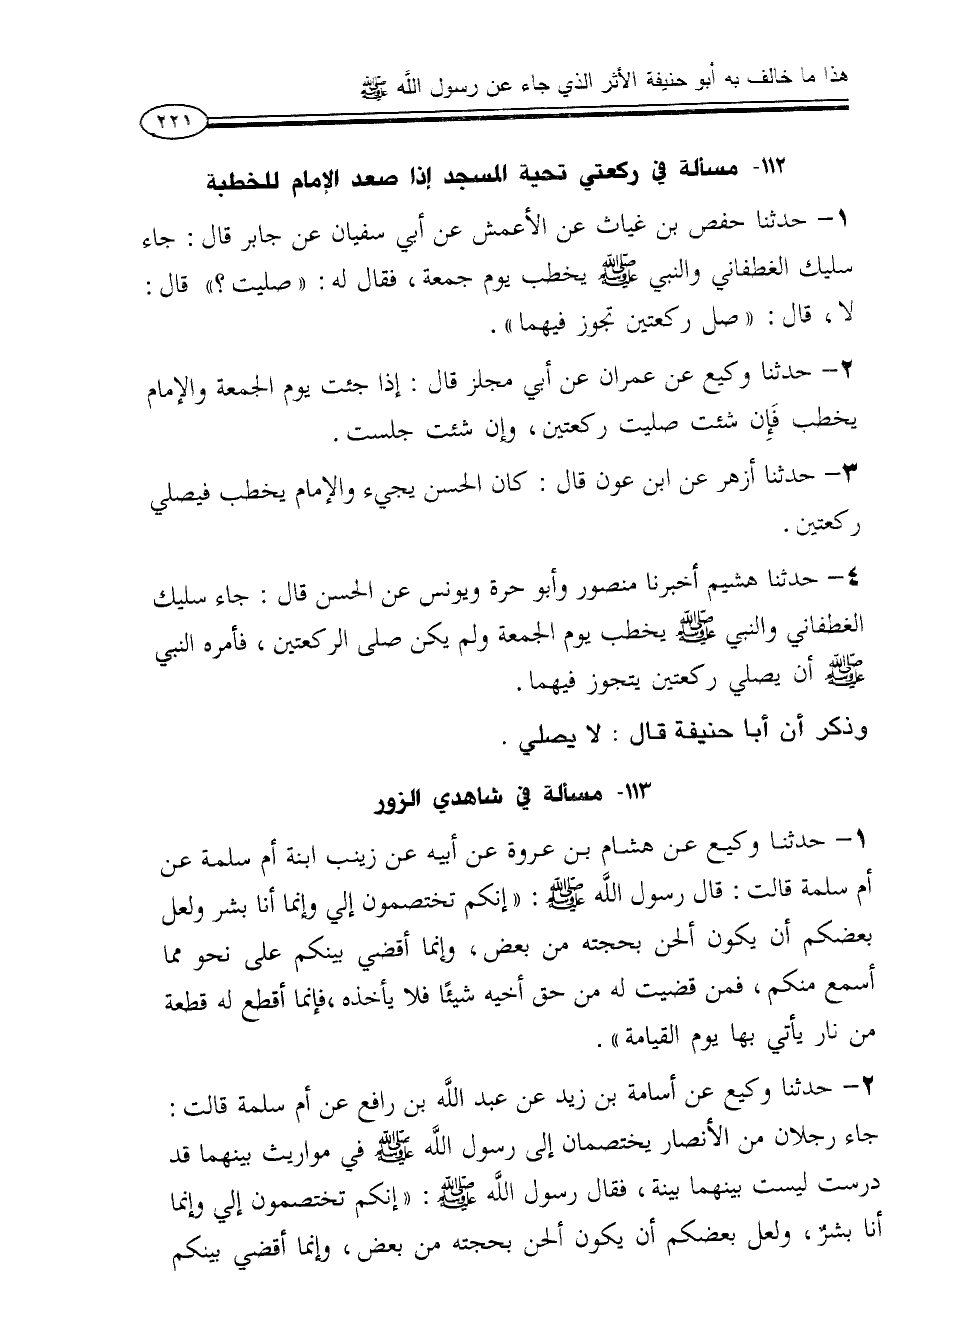 هذا ما خالف به أبو حنيفة الأثر الذي جاء عن رسول اللَّه ﷺ
٢٢١
١١٢- مسألة في ركعتي تحية المسجد إذا صعد الإمام للخطبة
١- حدثنا حفص بن غياث عن الأعمش عن أبي سفيان عن جابر قال : جاء
سليك الغطفاني والنبي ﷺ يخطب يوم جمعة ، فقال له : « صليت ؟» قال :
لا ، قال : « صل ركعتين تجوز فيهما» .
٢- حدثنا وكيع عن عمران عن أبي مجلز قال : إذا جئت يوم الجمعة والإمام
يخطب فَإِن شئت صليت ركعتين ، وإن شئت جلست .
٣- حدثنا أزهر عن ابن عون قال : كان الحسن يجيء والإمام يخطب فيصلي
ركعتين .
٤- حدثنا هشيم أخبرنا منصور وأبو حرة ويونس عن الحسن قال : جاء سليك
الغطفاني والنبي ﷺ يخطب يوم الجمعة ولم يكن صلى الركعتين ، فأمره النبي
ﷺ أن يصلي ركعتين يتجوز فيهما .
وذكر أن أبا حنيفة قال : لا يصلي .
١١٣- مسألة في شاهدي الزور
١- حدثنا وكيع عن هشام بن عروة عن أبيه عن زينب ابنة أم سلمة عن
أم سلمة قالت : قال رسول اللَّه ﷺ : « إنكم تختصمون إلي وإنما أنا بشر ولعل
بعضكم أن يكون ألحن بحجته من بعض ، وإنما أقضي بينكم على نحو مما
أسمع منكم ، فمن قضيت له من حق أخيه شيئًا فلا يأخذه ،فإنما أقطع له قطعة
من نار يأتي بها يوم القيامة» .
٢- حدثنا وكيع عن أسامة بن زيد عن عبد اللَّه بن رافع عن أم سلمة قالت :
جاء رجلان من الأنصار يختصمان إلى رسول اللَّه ﷺ في مواريث بينهما قد
درست ليست بينهما بينة ، فقال رسول اللَّه ﷺ : « إنكم تختصمون إلي وإنما
أنا بشرٌ ، ولعل بعضكم أن يكون ألحن بحجته من بعض ، وإنما أقضي بينكم